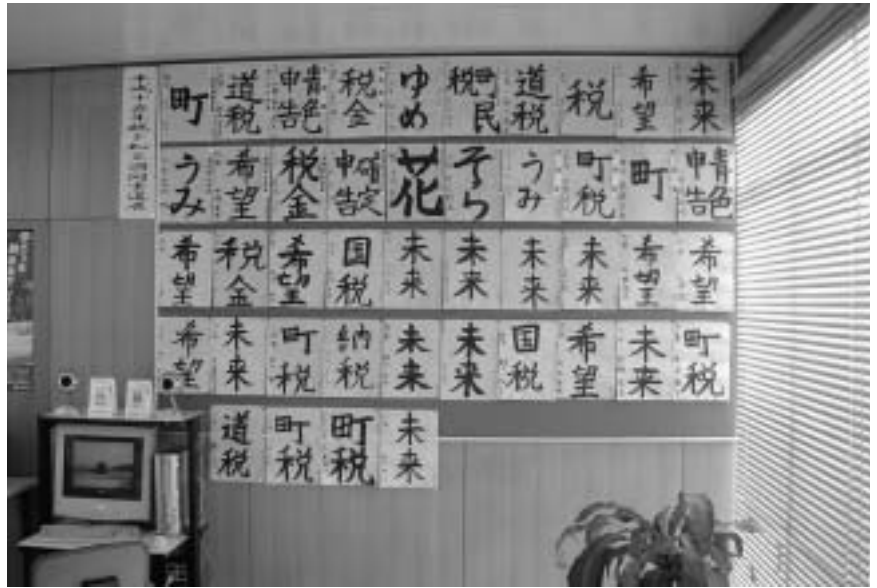 町 道税 青色申告 税金 ゆめ 町民税 道税 税 希望 未来
うみ 希望 税金 確定申告 花 そら うみ 町税 町 青色申告
希望 税金 希望 国税 未来 未来 未来 未来 希望 希望
希望 未来 町税 納税 未来 未来 国税 希望 未来 町税
道税 町税 町税 未来